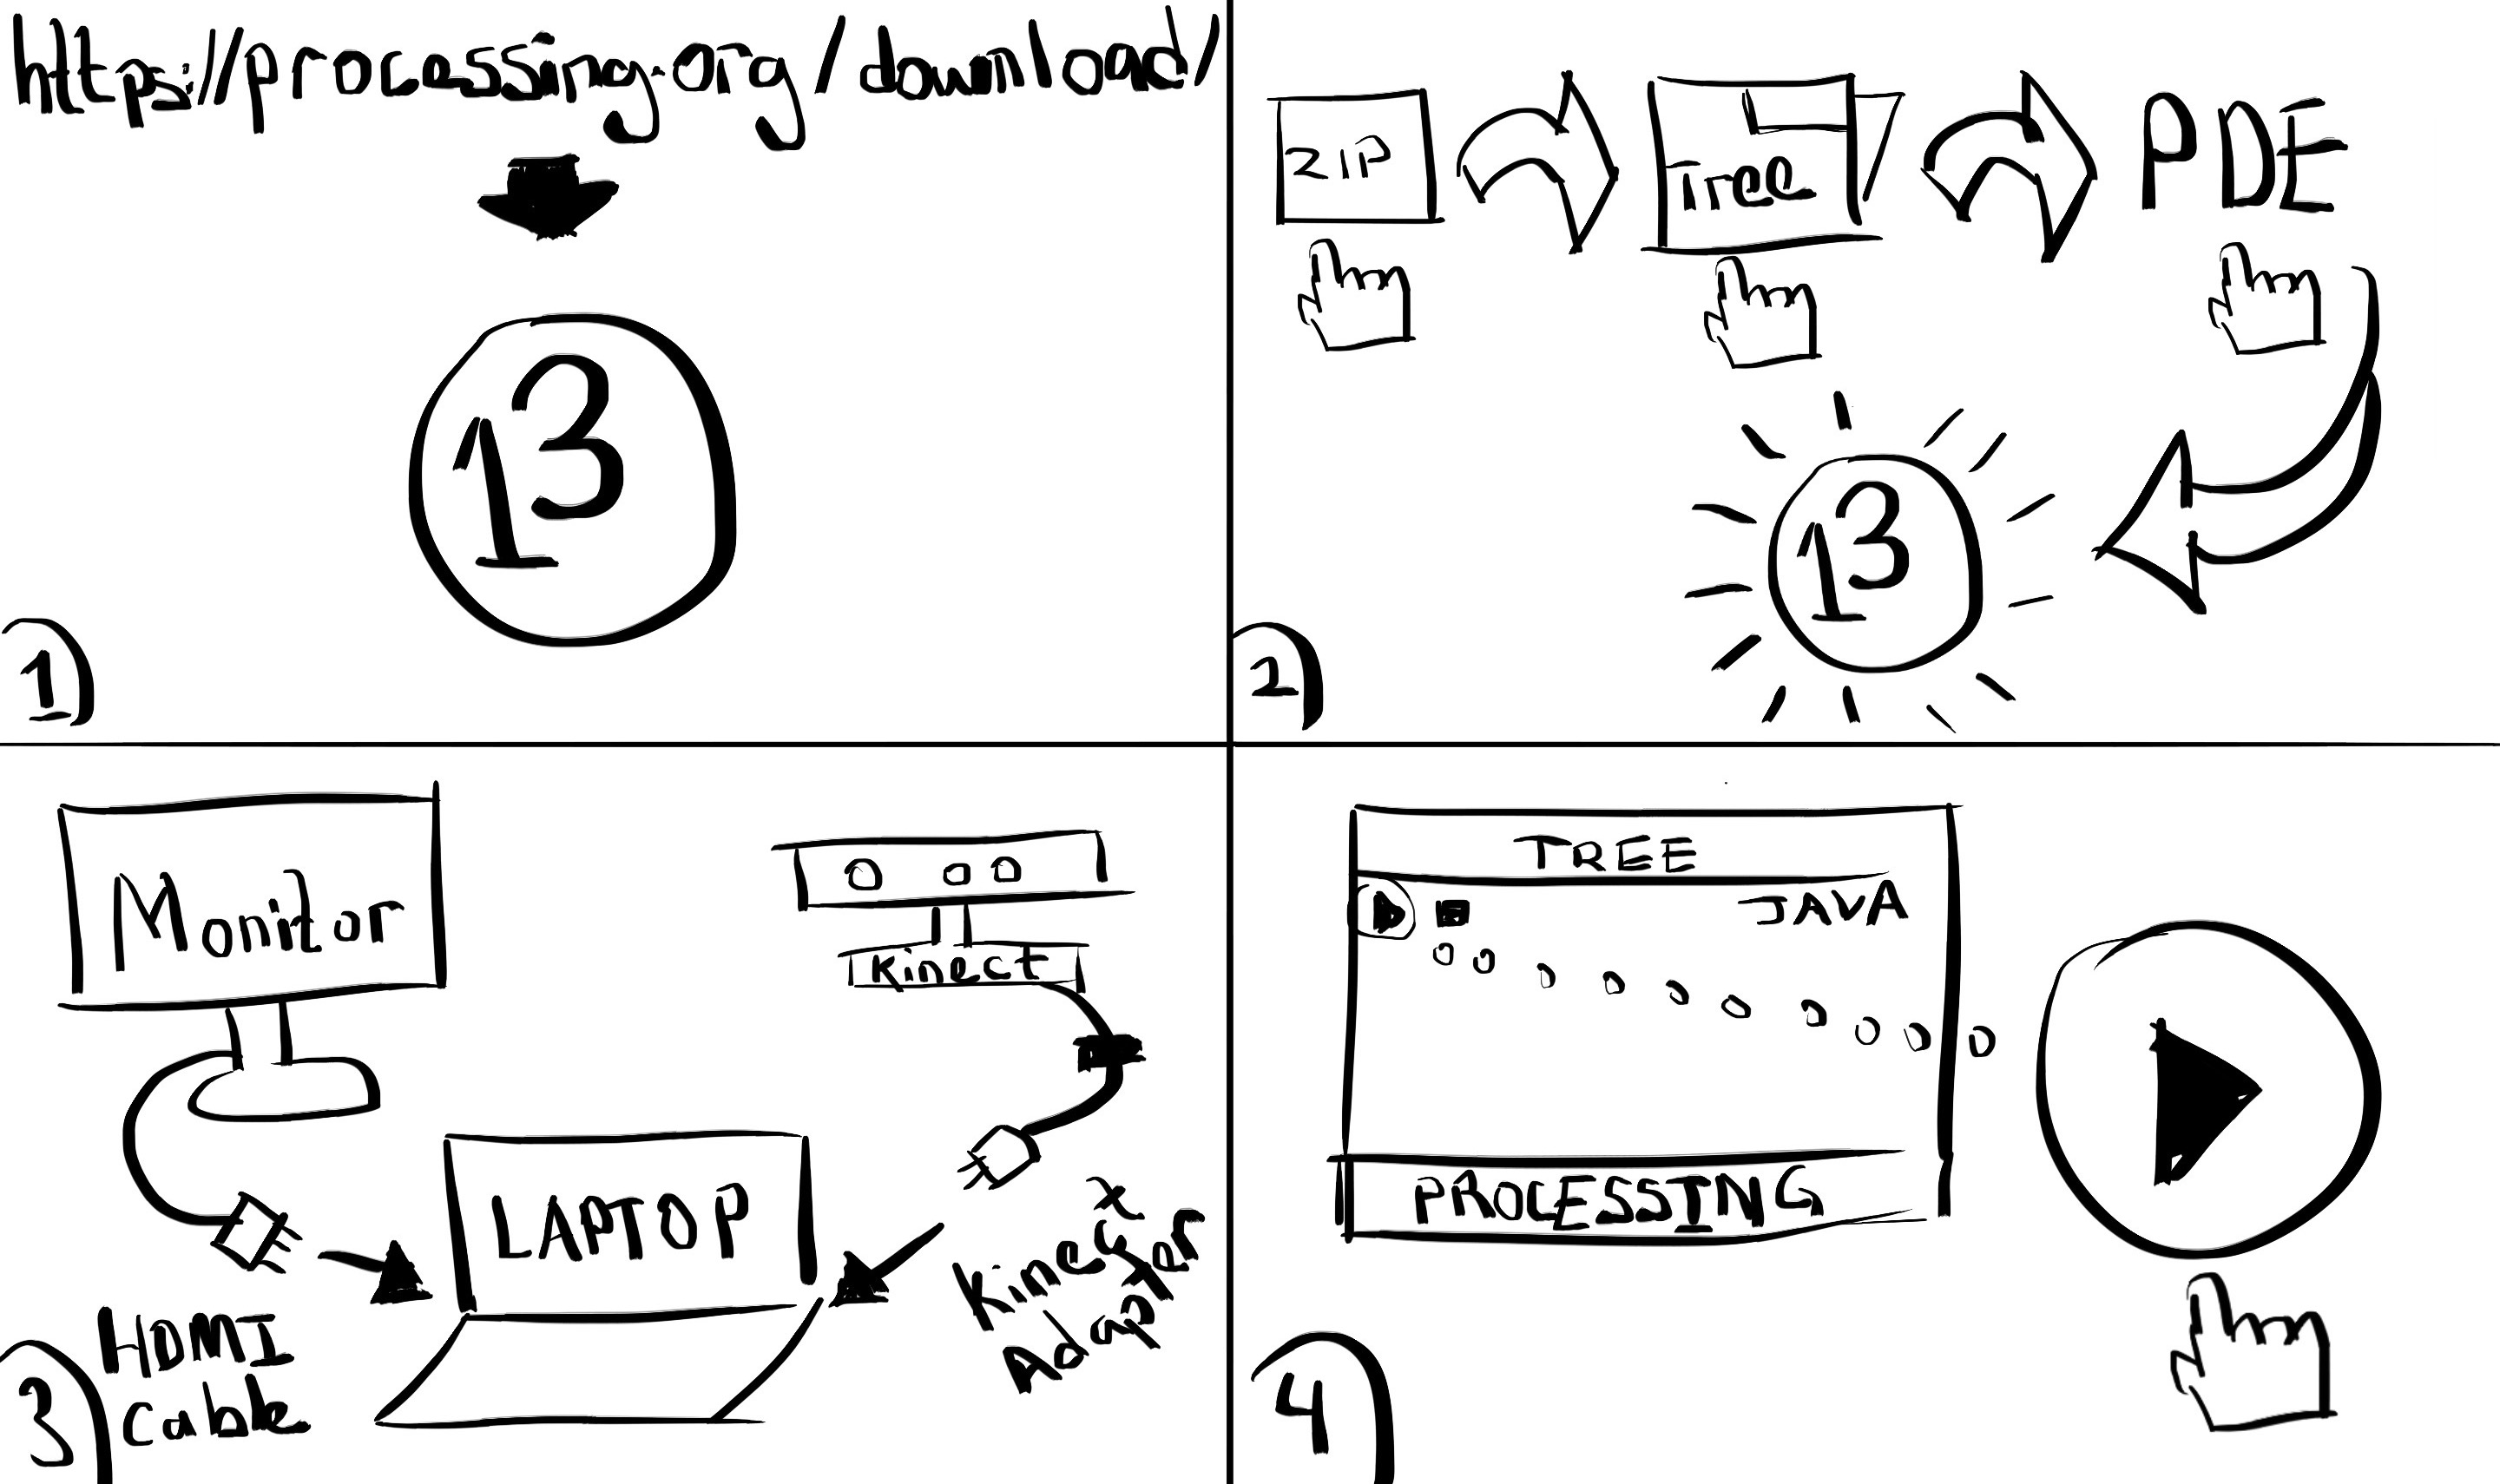 https://processing.org/download/
13
1
ZIP
Tree
PDE
13
2
Monitor
Kinect
LAPTOP
HDMI
Cable
Kinect
Adapter
3
TREE
JAVA
PROCESSING
4